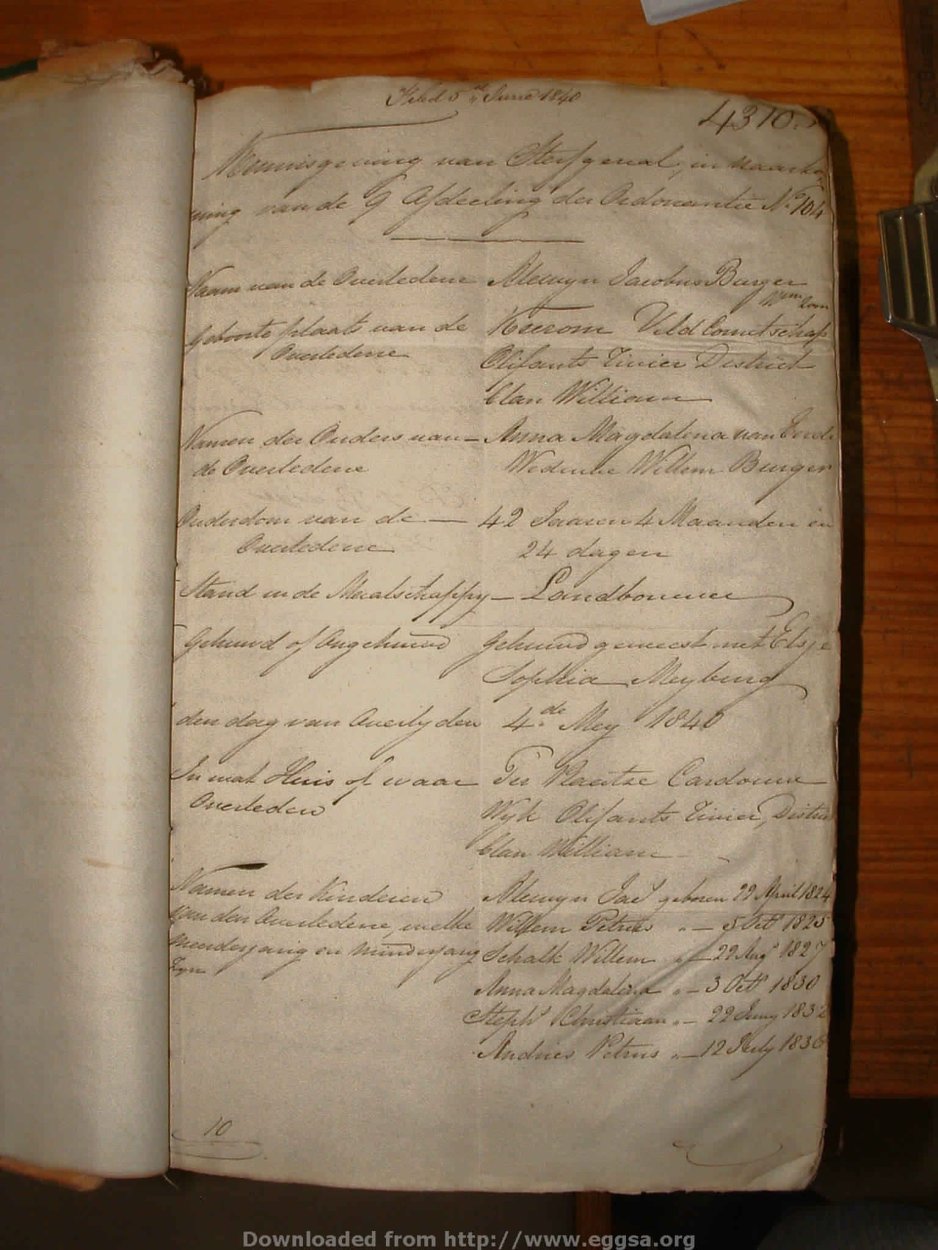 Filed 5th June 1840
4370.
Kennisgeving van Sterfgeval, in naarko
ming van de 9 Afdeeling der Ordonantie No 104
Naam van de Overledene Alewyn Jacobus Burger
Wm zoon
Geboorte plaats van de Keerom Veld Cornetschap
Overledene Olifants Rivier District
Clan William
Namen der Ouders van Anna Magdalena van
de Overledene Weduwe Willem Burger
Ouderdom van de 42 Jaaren 4 Maanden en
Overledene 24 dagen
Stand in de Maatschappy Landbouwer
Gehuwd of Ongehuwd gehuwd geweest met Elsje
Sophia Meyburg
den dag van Overlyden 4de Mey 1840
In wat Huis of waar Ter Plaatse Cardouw
Overleden Wyk Olifants Rivier, District
Clan William
Namen der Kinderen Alewyn Jac geboren 29 April 1824
van den Overledene, welke Willem Petrus " 5 Oct 1825
meerderjarig en minderjarig Schalk Willem " 29 Aug 1827
Zyn
Anna Magdalena " 3 Oct 1830
Steph Christiaan " 22 Juny 1832
Andries Petrus " 12 July 1836
10
Downloaded from http://www.eggsa.org